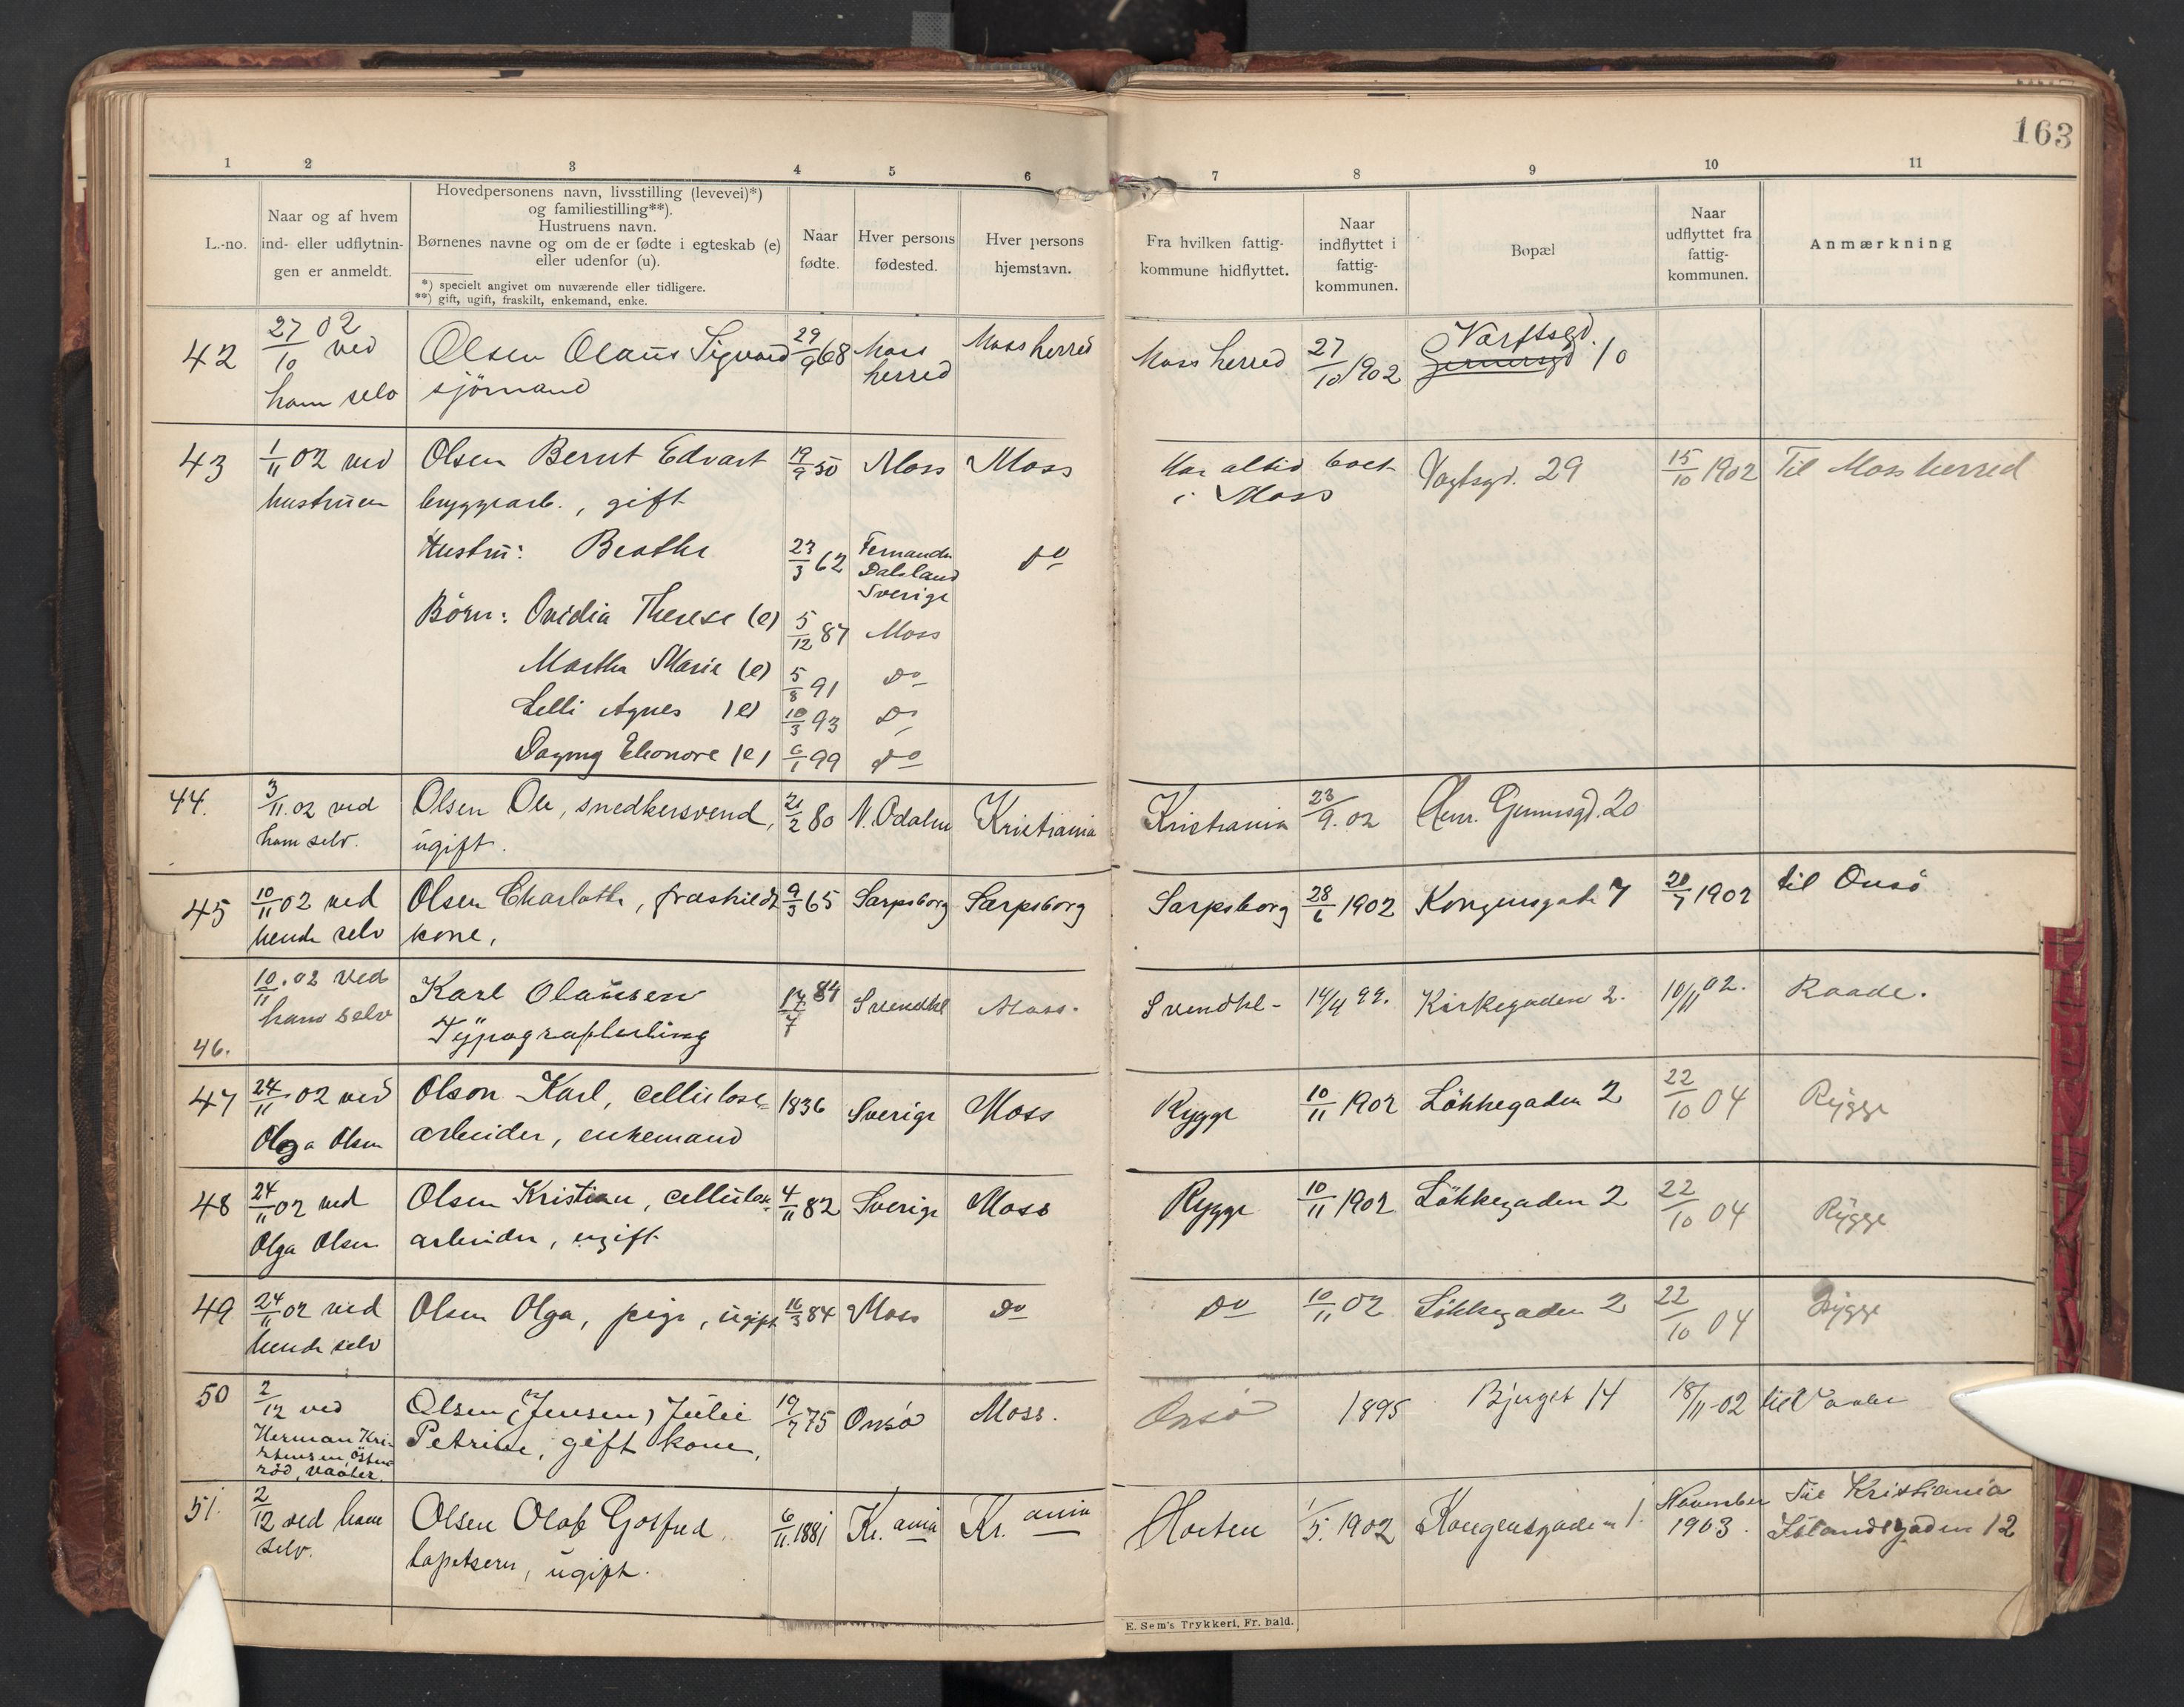 163
1 2 3 4 5 6 7 8 9 10 11
L.-no.
Naar og af hvem
ind- eller udflytnin-
gen er anmeldt.
Hovedpersonens navn, livsstilling (levevei)*)
og familiestilling**).
Hustruens navn.
Børnenes navne og om de er fødte i egteskab (e)
eller udenfor (u).
*) specielt angivet om nuværende eller tidligere.
**) gift, ugift, fraskilt, enkemand, enke.
Naar
fødte.
Hver persons
fødested.
Hver persons
hjemstavn.
Fra hvilken fattig-
kommune hidflyttet.
Naar
indflyttet i
fattig-
kommunen.
Bopæl
Naar
udflyttet fra
fattig-
kommunen.
Anmærkning
42 27/10 02 ved Olsen Olaus Sigvard 29/9 68 Moss Moss herred Moss herred 27/10 1902 Værftsgd. 10
ham selv sjömand herred
43 1/11 02 ved Olsen Bernt Edvart 19/9 50 Moss Moss Har altid boet Vogtsgd. 29 15/10 1902 Til Moss herred
hustruen bryggearb., gift i Moss
Hustru: Beathe 23/3 62 Do
Dalsland
Sverige
Börn: Ovidia Therese (e) 5/12 87 Moss
Martha Marie (e) 5/8 91 Do
Lelli Agnes (e) 10/3 93 Do
Dagny Eleonore (e) 6/1 99 Do
44. 3/11.02 ved Olsen Ole, snedkersvend, 21/2 80 N. Odalen Kristiania Kristiania 23/9.02 20
ham selv. ugift.
45 10/11 02 ved Olsen Charlothe, fraskildt 9/3 65 Sarpsborg Sarpsborg Sarpsborg 28/6 1902 Kongensgade 7 20/7 1902 til Onsö
hende selv kone,
46. 10/11.02 ved Karl Olausen 17/7 84 Svendkl Moss. Svendkl- 14/4 99. Kirkegaden 2. 10/11 02. Raade.
ham selv Typograflærling
47 24/11 02 ved Olson Karl, cellulose- 1836 Sverige Moss Rygge 10/11 1902 Lökkegaden 2 22/10 04 Rygge
Olga Olsen arbeider, enkemand
48 24/11 02 ved Olsen Kristian, cellulose- 4/11 82 Sverige Moss Rygge 10/11 1902 Lökkegaden 2 22/10 04 Rygge
Olga Olsen arbeider, ugift
49 24/11 02 ved Olsen Olga, pige, ugift 16/3 84 Moss Do Do 10/11 02 Lökkegaden 2 22/10 04 Rygge
hende selv
50 2/12 ved Olsen (Jensen) Julie 19/7 75 Onsö Moss. Onsö 1895 Bjerget 14 18/11-02 til Vaaler
Herman Kri- Petrine, gift kone,
stensen, Östen-
röd, Vaaler.
51. 2/12 ved ham Olsen Olaf Gotfred, 6/11.1881 Kr.ania Kr.ania Horten 1/5.1902 Kongensgaden 1. November Til Kristiania
selv. tapetserer, ugift. 1903. Islandsgaden 12
E. Sem's Trykkeri, Fr. hald.